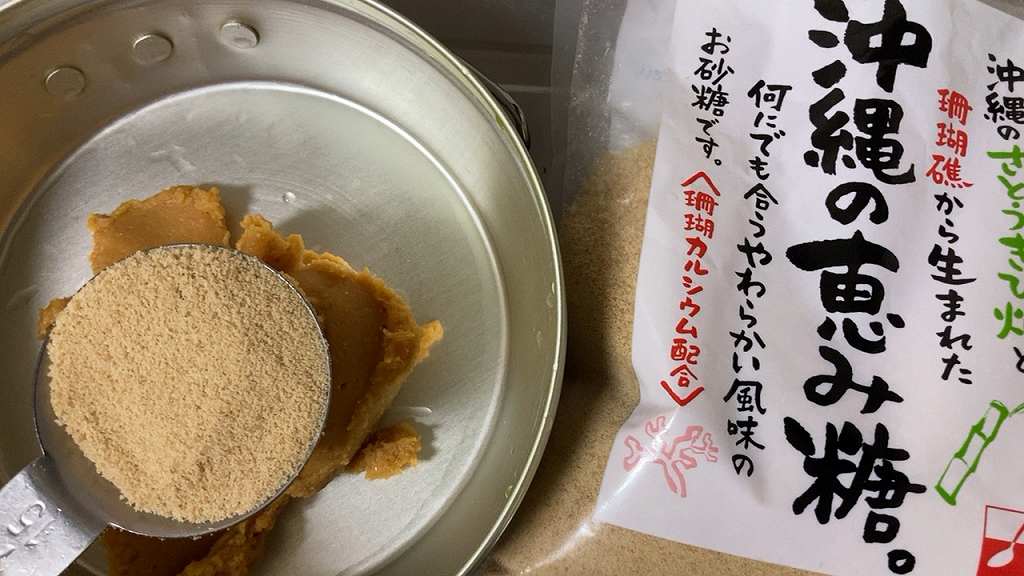 沖縄のさとうきび畑と
珊瑚礁から生まれた
沖縄の恵み糖。
何にでも合うやわらかい風味の
お砂糖です。
〈珊瑚カルシウム配合〉